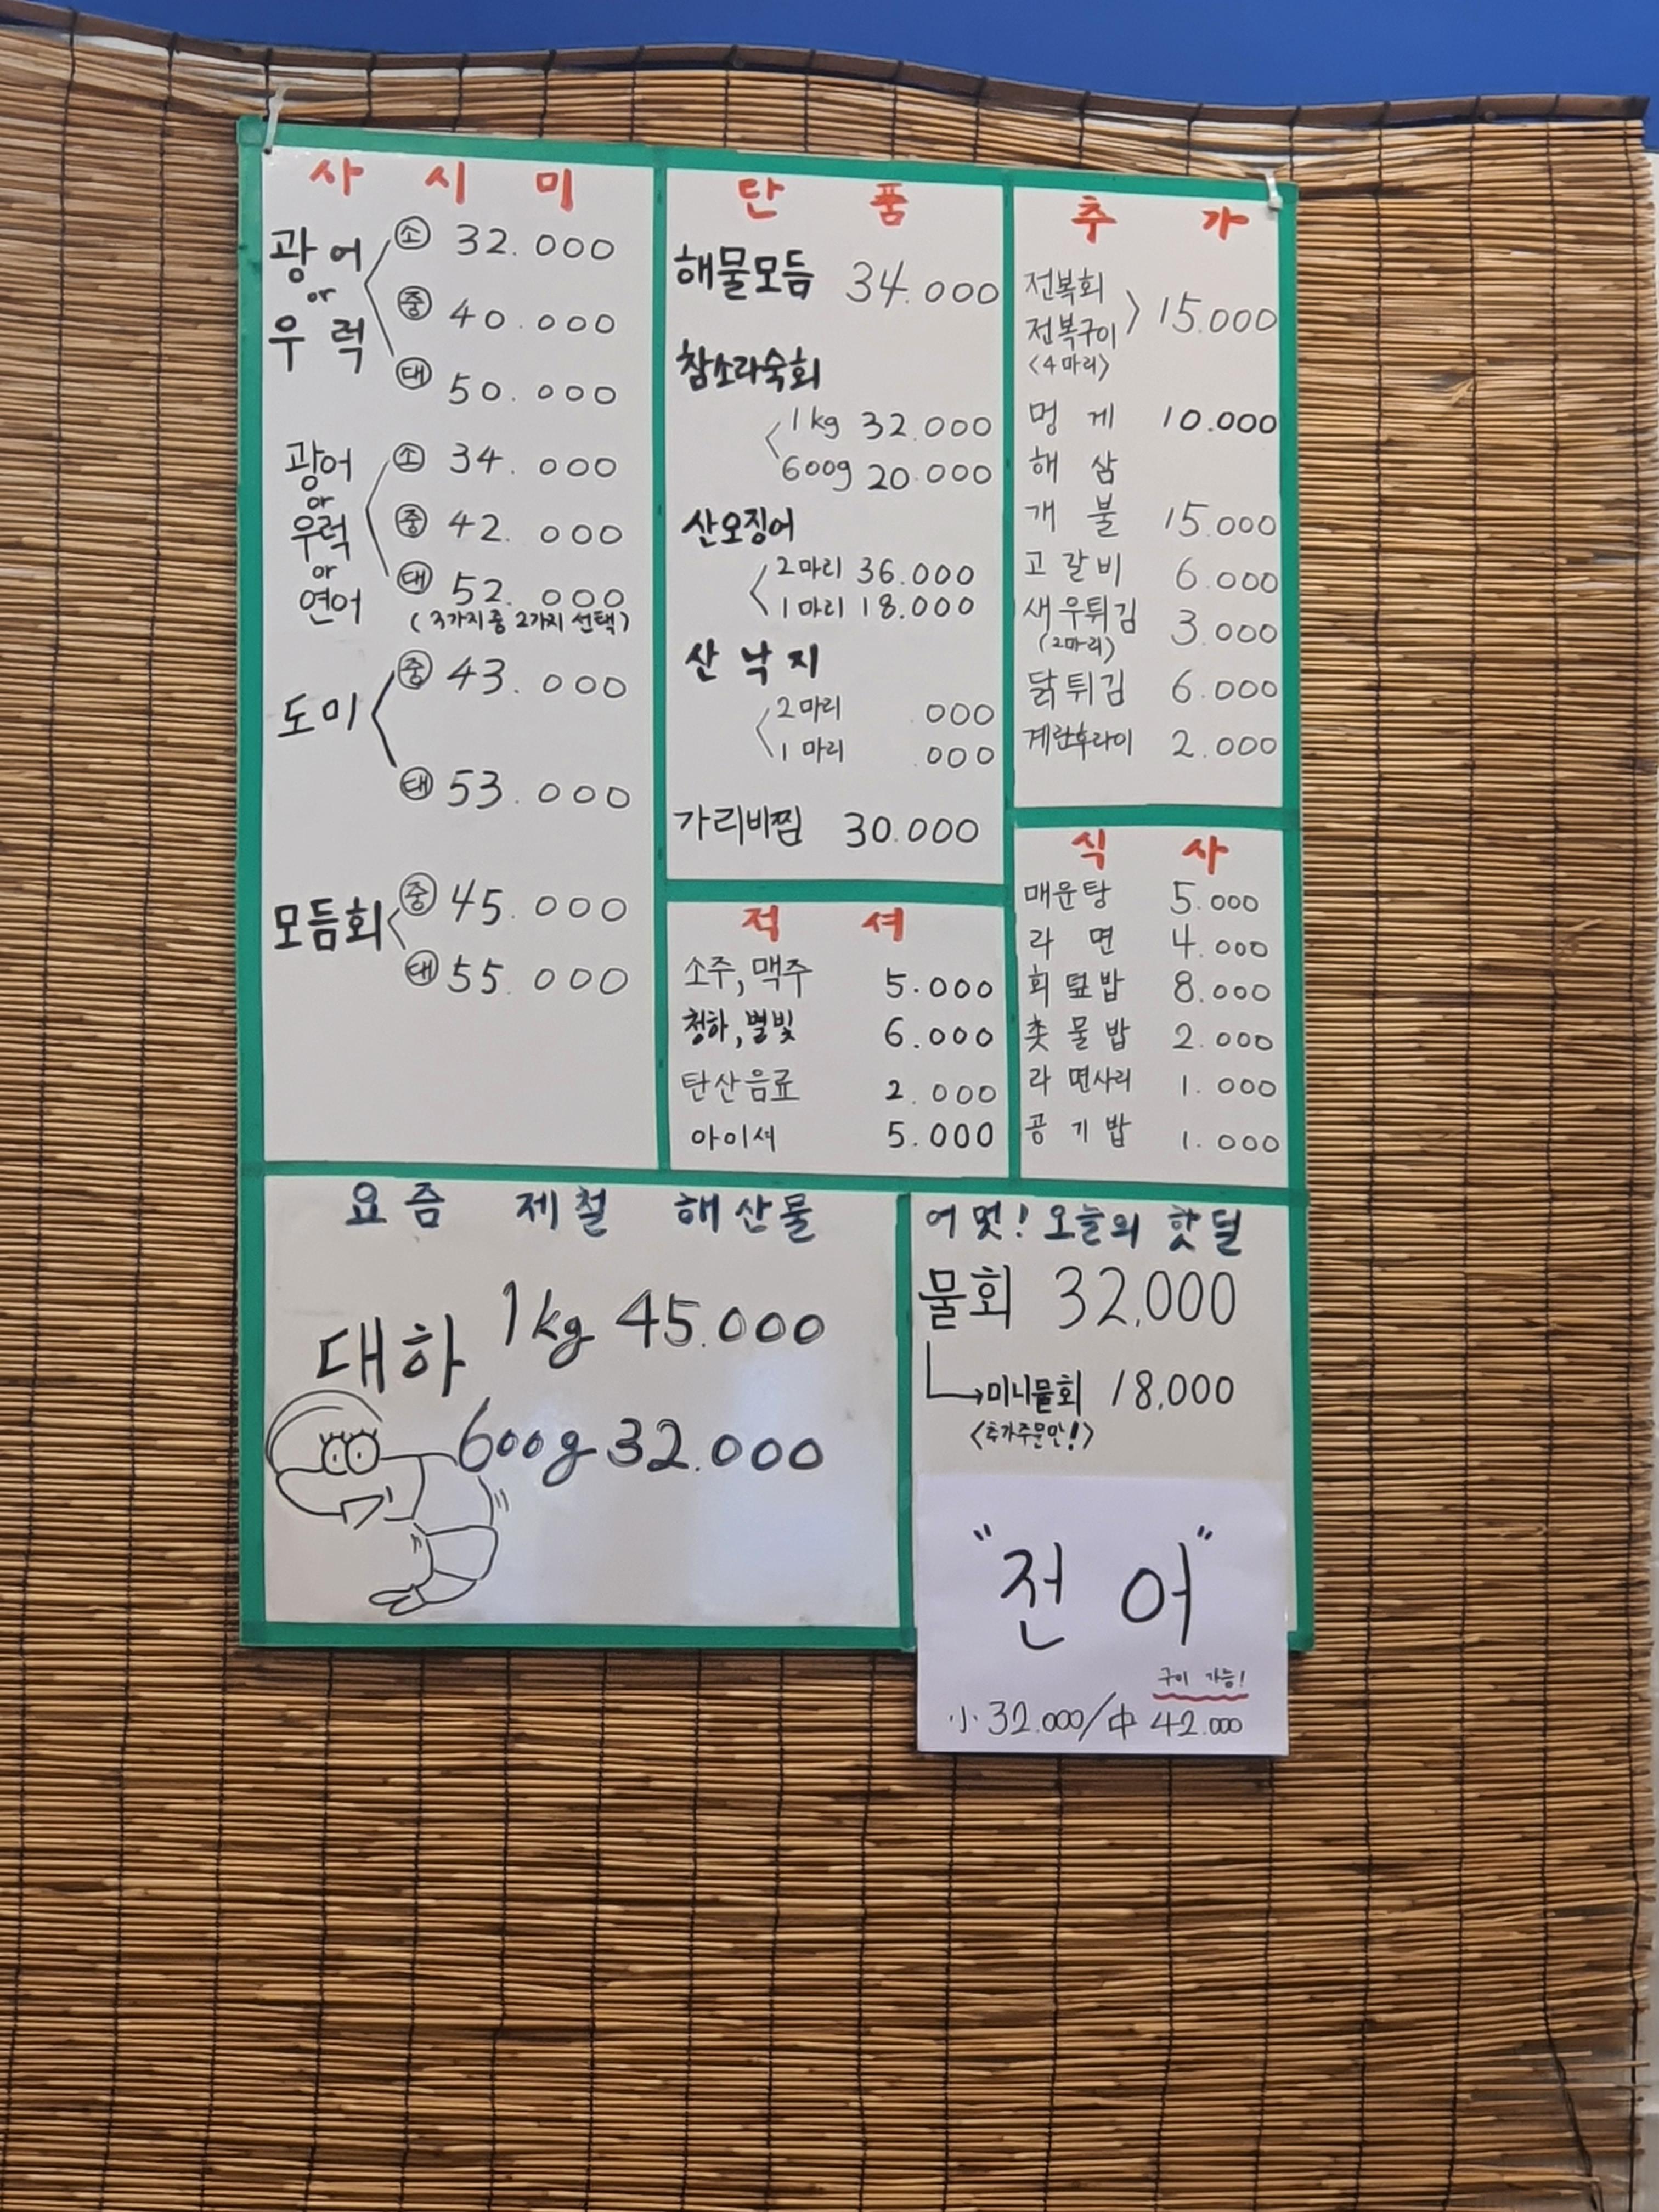 사 시 미
광어 or 우럭
소 32.000
중 40.000
대 50.000
광어 or 우럭 or 연어
소 34.000
중 42.000
대 52.000
(3가지중 2가지 선택)
도미
중 43.000
대 53.000
모듬회
중 45.000
대 55.000
단 품
해물모듬 34.000
참소라숙회
1kg 32.000
600g 20.000
산오징어
2마리 36.000
1마리 18.000
산 낙 지
2마리 000
1마리 .000
가리비찜 30.000
추 가
전복회
전복구이 15.000
<4마리>
멍 게 10.000
해 삼
개 불 15.000
고갈비 6.000
새우튀김 3.000
(2마리)
닭튀김 6.000
계란후라이 2.000
적 셔
소주, 맥주 5.000
청하, 별빛 6.000
탄산음료 2.000
아이셔 5.000
식 사
매운탕 5.000
라 면 4.000
회덮밥 8.000
촛물밥 2.000
라면사리 1.000
공기밥 1.000
요즘 제철 해산물
대하 1kg 45.000
600g 32.000
어멋! 오늘의 핫딜
물회 32,000
→미니물회 18,000
<추가주문만!>
"전 어"
구이 가능!
小 32.000/中 42.000